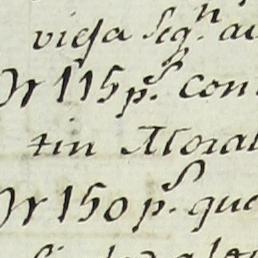 vieja seg.n au
Or 115 p.s con
tin Moral
Or 150 p.s que